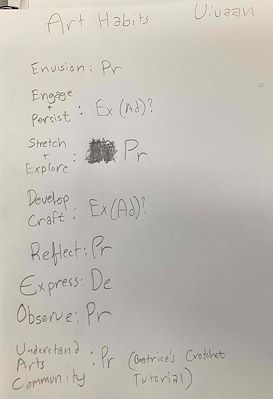 Art Habits Vivaan
Envision: Pr
Engage
+
Persist : Ex (Ad)?
Stretch
+
Explore : Pr
Develop
Craft : Ex (Ad)?
Reflect: Pr
Express: De
Observe: Pr
Understand
Arts : Pr (Beatrice's Crotchet
Community Tutorial)